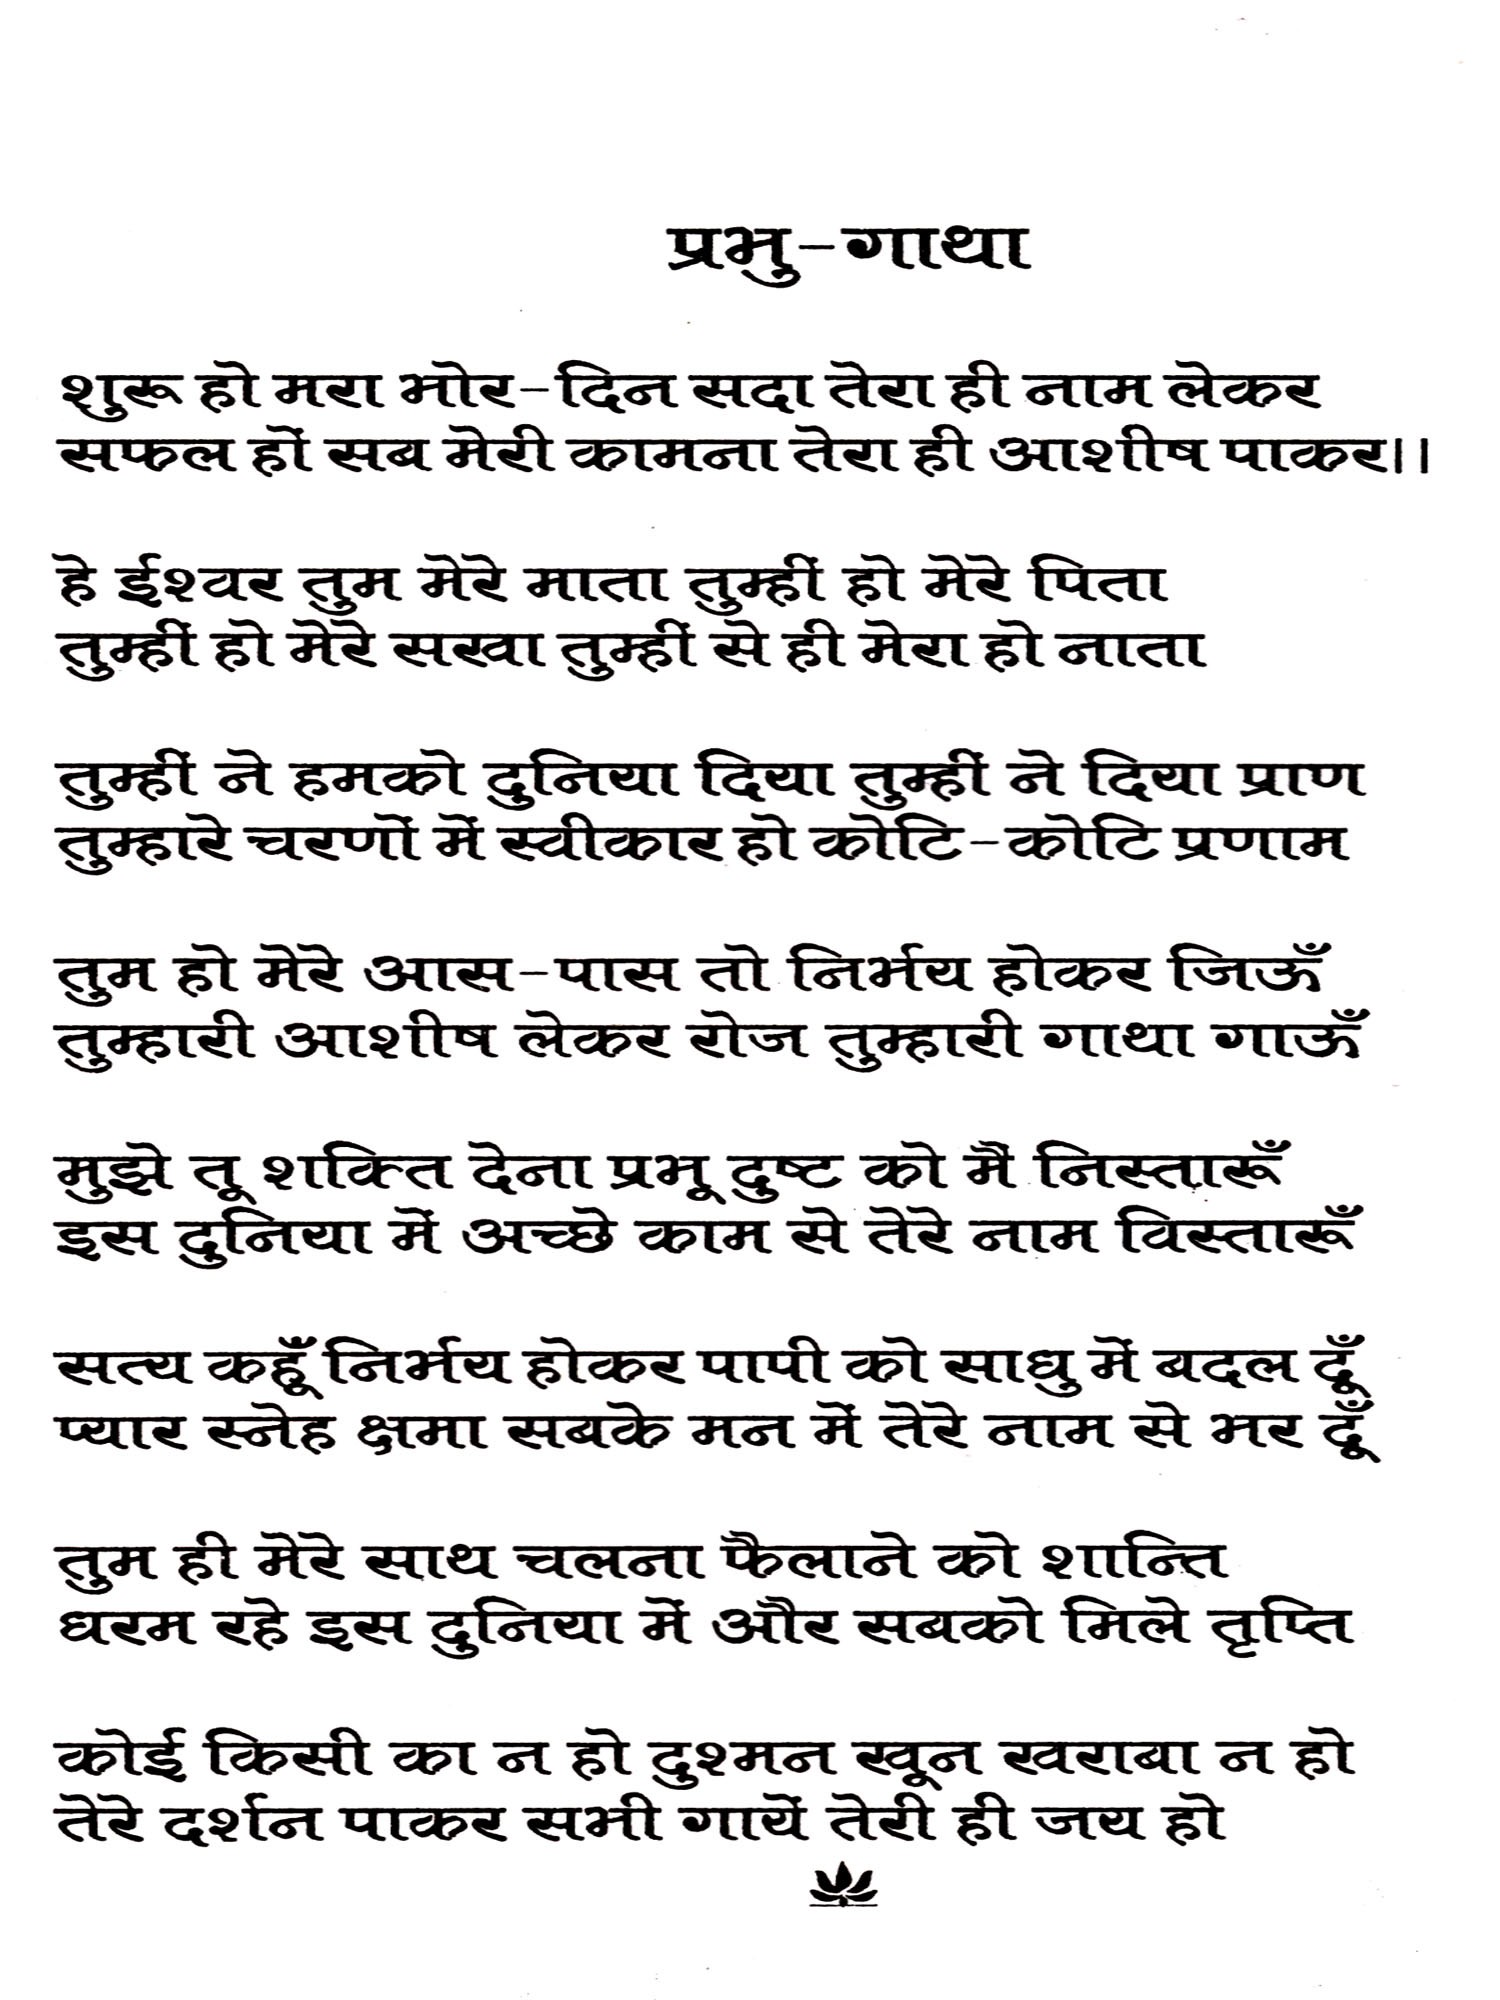 प्रभु-गाथा
शुरू हो मरा भोर-दिन सदा तेरा ही नाम लेकर
सफल हों सब मेरी कामना तेरा ही आशीष पाकर।।
हे ईश्वर तुम मेरे माता तुम्हीं हो मेरे पिता
तुम्हीं हो मेरे सखा तुम्हीं से ही मेरा हो नाता
तुम्हीं ने हमको दुनिया दिया तुम्हीं ने दिया प्राण
तुम्हारे चरणों में स्वीकार हो कोटि-कोटि प्रणाम
तुम हो मेरे आस-पास तो निर्भय होकर जिऊँ
तुम्हारी आशीष लेकर रोज तुम्हारी गाथा गाऊँ
मुझे तू शक्ति देना प्रभू दुष्ट को मैं निस्तारूँ
इस दुनिया में अच्छे काम से तेरे नाम विस्तारूँ
सत्य कहूँ निर्भय होकर पापी को साधु में बदल दूँ
प्यार स्नेह क्षमा सबके मन में तेरे नाम से भर दूँ
तुम ही मेरे साथ चलना फैलाने को शान्ति
धरम रहे इस दुनिया में और सबको मिले तृप्ति
कोई किसी का न हो दुश्मन खून खराबा न हो
तेरे दर्शन पाकर सभी गायें तेरी ही जय हो